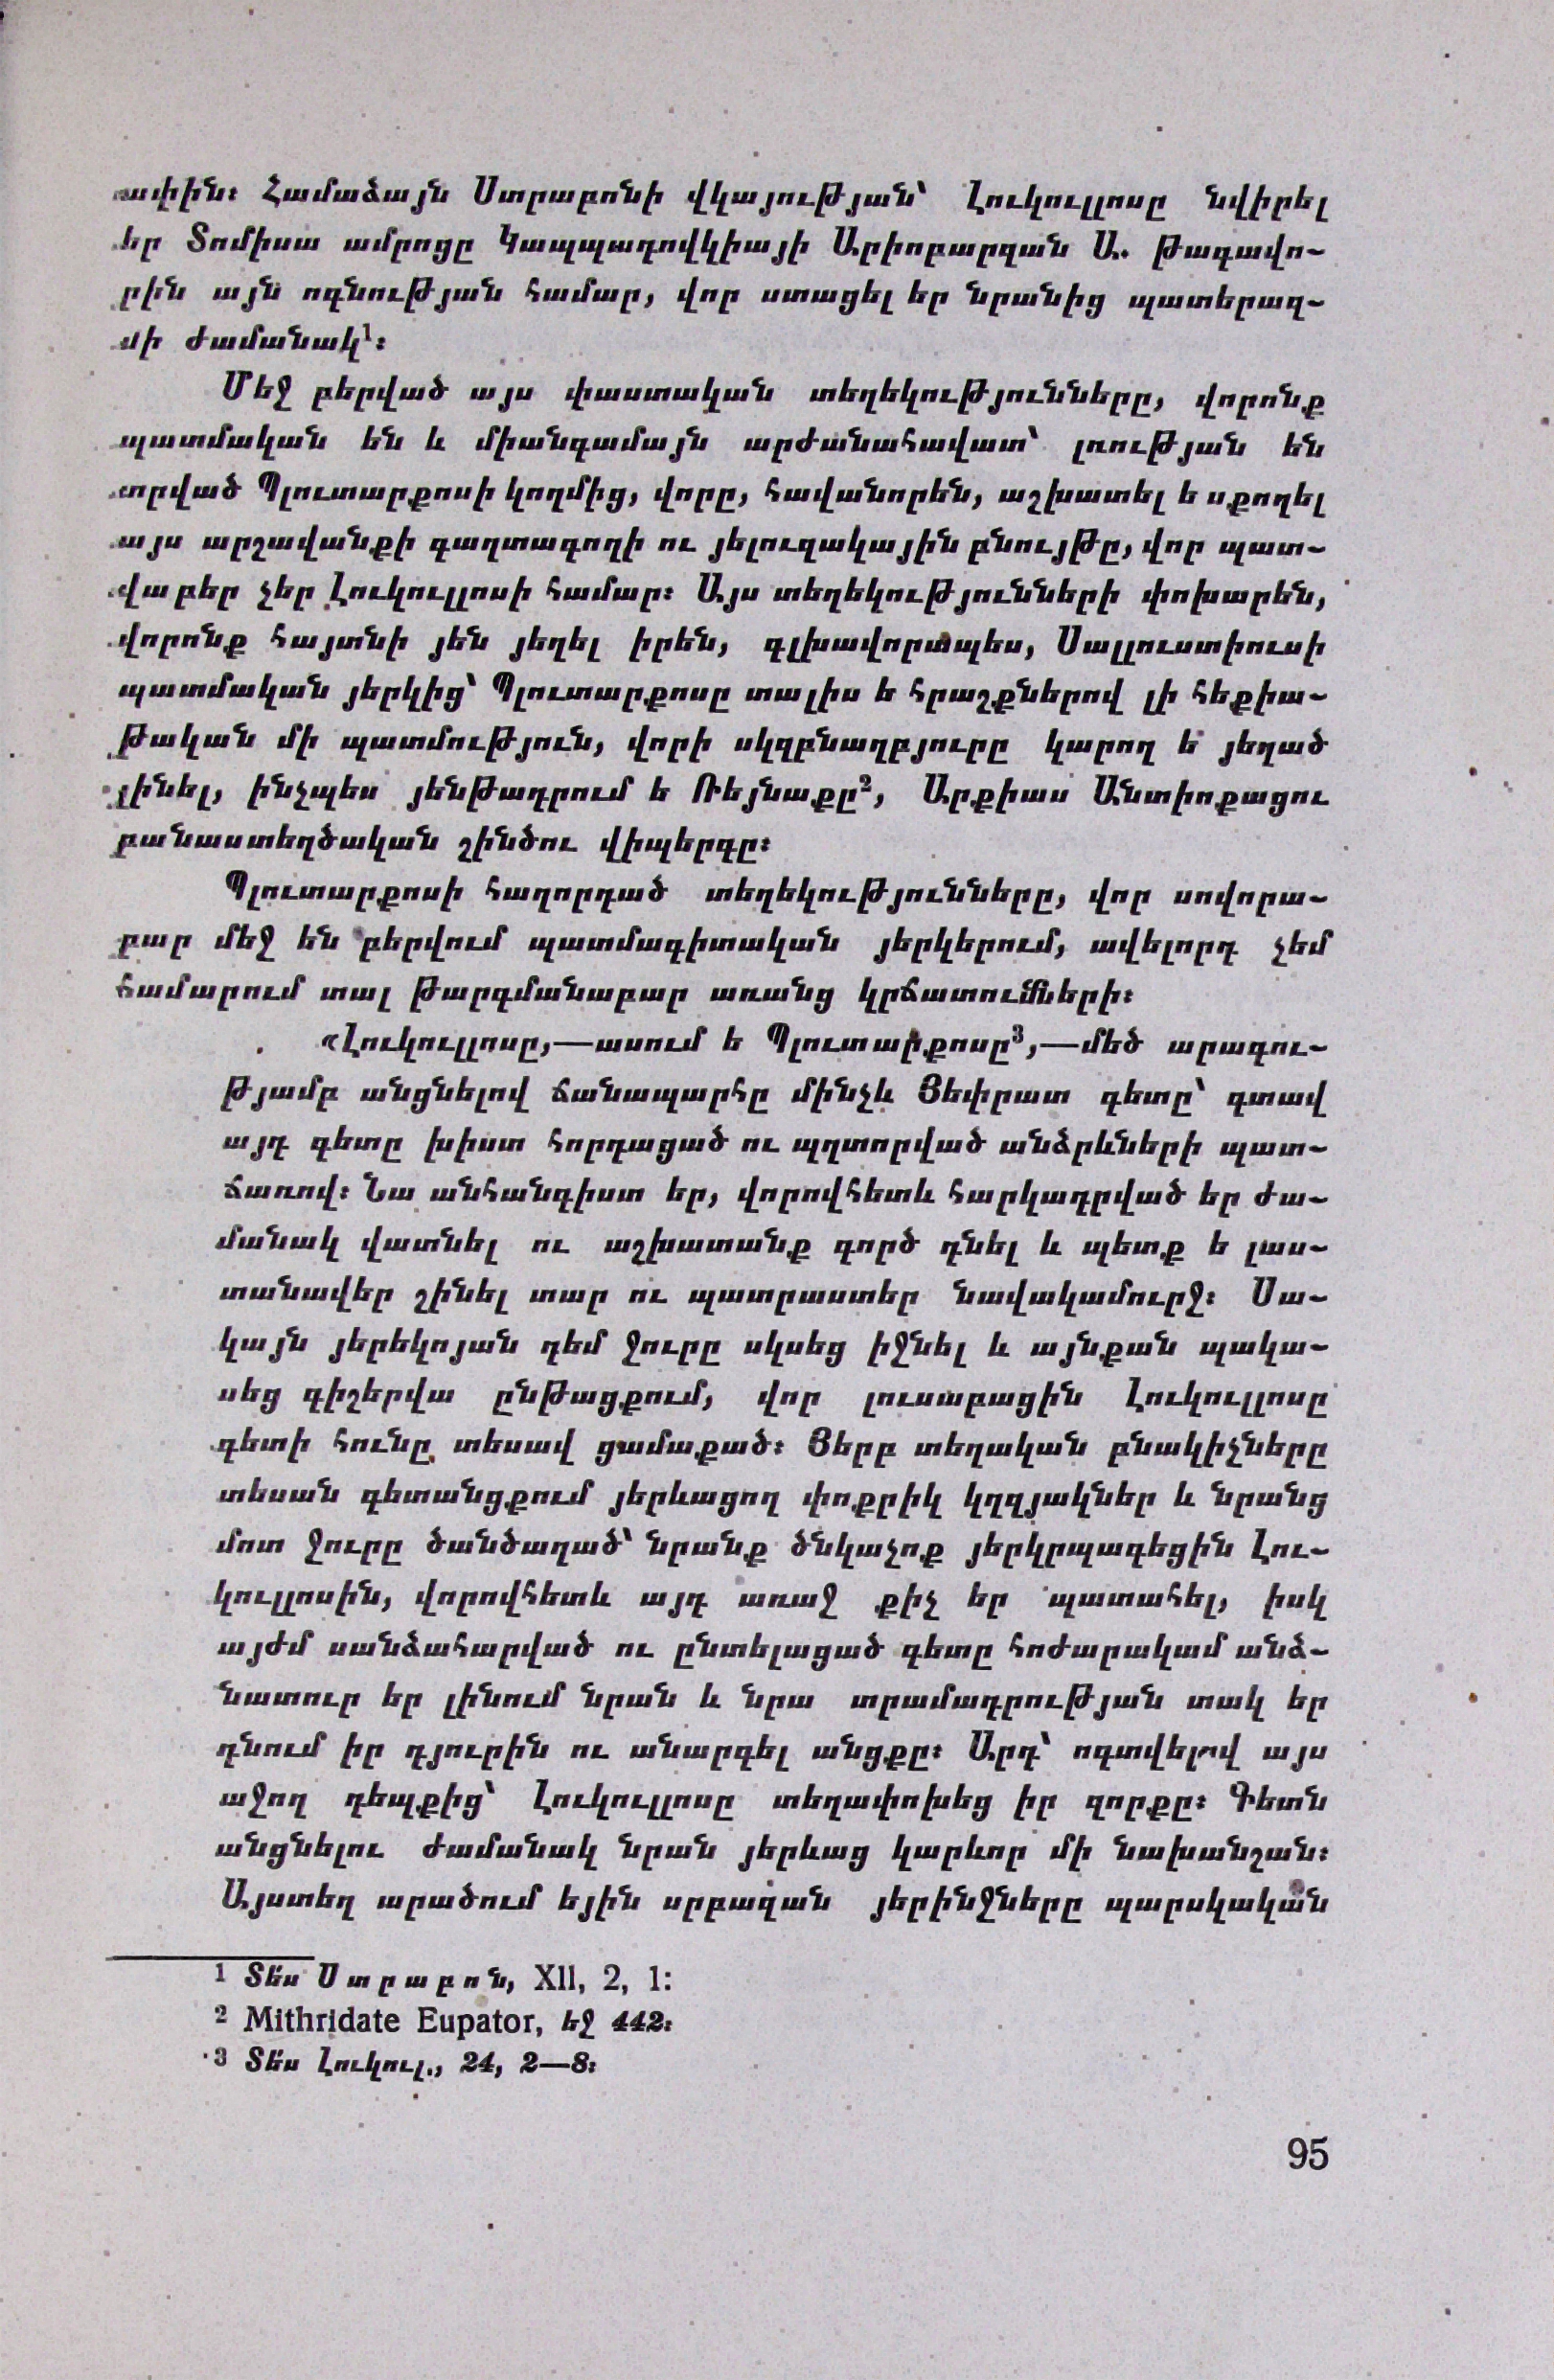 ափին։ Համաձայն Ստրաբոնի վկայության՝ Լուկուլլոսը նվիրել
եր Տոմիսա ամրոցը Կապպադովկիայի Արիոբարզան Ա. թագավո-
րին այն ոգնության համար, վոր ստացել եր նրանից պատերազ-
մի ժամանակ¹։
Մեջ բերված այս փաստական տեղեկությունները, վորոնք
պատմական են և միանգամայն արժանահավատ՝ լռության են
տրված Պլուտարքոսի կողմից, վորը, հավանորեն, աշխատել ե սքողել
այս արշավանքի գաղտագողի ու յելուզակային բնույթը, վոր պատ-
վաբեր չեր Լուկուլլոսի համար։ Այս տեղեկությունների փոխարեն,
վորոնք հայտնի յեն յեղել իրեն, գլխավորապես, Սալլուստիուսի
պատմական յերկից՝ Պլուտարքոսը տալիս ե հրաշքներով լի հեքիա-
թական մի պատմություն, վորի սկզբնաղբյուրը կարող ե յեղած
լինել, ինչպես յենթադրում ե Ռեյնաքը², Արքիաս Անտիոքացու
բանաստեղծական շինծու վիպերգը։
Պլուտարքոսի հաղորդած տեղեկությունները, վոր սովորա-
բար մեջ են բերվում պատմագիտական յերկերում, ավելորդ չեմ
համարում տալ թարգմանաբար առանց կրճատումների։
«Լուկուլլոսը,—ասում ե Պլուտարքոսը³,—մեծ արագու-
թյամբ անցնելով ճանապարհը մինչև Յեփրատ գետը՝ գտավ
այդ գետը խիստ հորդացած ու պղտորված անձրևների պատ-
ճառով։ Նա անհանգիստ եր, վորովհետև հարկադրված եր ժա-
մանակ վատնել ու աշխատանք գործ դնել և պետք ե լաս-
տանավեր շինել տար ու պատրաստեր նավակամուրջ։ Սա-
կայն յերեկոյան դեմ ջուրը սկսեց իջնել և այնքան պակա-
սեց գիշերվա ընթացքում, վոր լուսաբացին Լուկուլլոսը
գետի հունը տեսավ ցամաքած։ Յերբ տեղական բնակիչները
տեսան գետանցքում յերևացող փոքրիկ կղզյակներ և նրանց
մոտ ջուրը ծանծաղած՝ նրանք ծնկաչոք յերկրպագեցին Լու-
կուլլոսին, վորովհետև այդ առաջ քիչ եր պատահել, իսկ
այժմ սանձահարված ու ընտելացած գետը հոժարակամ անձ-
նատուր եր լինում նրան և նրա տրամադրության տակ եր
դնում իր դյուրին ու անարգել անցքը։ Արդ՝ ոգտվելով այս
աջող դեպքից՝ Լուկուլլոսը տեղափոխեց իր զորքը։ Գետն
անցնելու ժամանակ նրան յերևաց կարևոր մի նախանշան։
Այստեղ արածում եյին սրբազան յերինջները պարսկական
1 Տե՛ս Ստրաբոն, XII, 2, 1:
2 Mithridate Eupator, եջ 442։
3 Տե՛ս Լուկուլ., 24, 2—8։
95